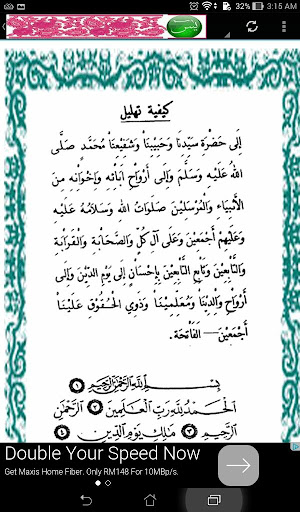 3:15 AM
يس
كيفية تهليل
إِلَى حَضْرَةِ سَيِّدِنَا وَحَبِيبِنَا وَشَفِيعِنَا مُحَمَّدٍ صَلَّى
اللهُ عَلَيْهِ وَسَلَّمَ وَإِلَى أَرْوَاحِ آبَائِهِ وَإِخْوَانِهِ مِنَ
الْأَنْبِيَاءِ وَالْمُرْسَلِينَ صَلَوَاتُ اللهِ وَسَلَامُهُ عَلَيْهِ
وَعَلَيْهِمْ أَجْمَعِينَ وَعَلَى آلِ كُلٍّ وَالصَّحَابَةِ وَالْقَرَابَةِ
وَالتَّابِعِينَ وَتَابِعِ التَّابِعِينَ بِإِحْسَانٍ إِلَى يَوْمِ الدِّينِ وَإِلَى
أَرْوَاحِ وَالِدِينَا وَمُعَلِّمِينَا وَذَوِي الْحُقُوقِ عَلَيْنَا
أَجْمَعِينَ — الْفَاتِحَة.
بِسْمِ اللَّهِ الرَّحْمَٰنِ الرَّحِيمِ ﴿١﴾
الْحَمْدُ لِلَّهِ رَبِّ الْعَالَمِينَ ﴿٢﴾ الرَّحْمَٰنِ
الرَّحِيمِ ﴿٣﴾ مَالِكِ يَوْمِ الدِّينِ ﴿٤﴾
Double Your Speed Now
Get Maxis Home Fiber. Only RM148 For 10MBp/s.